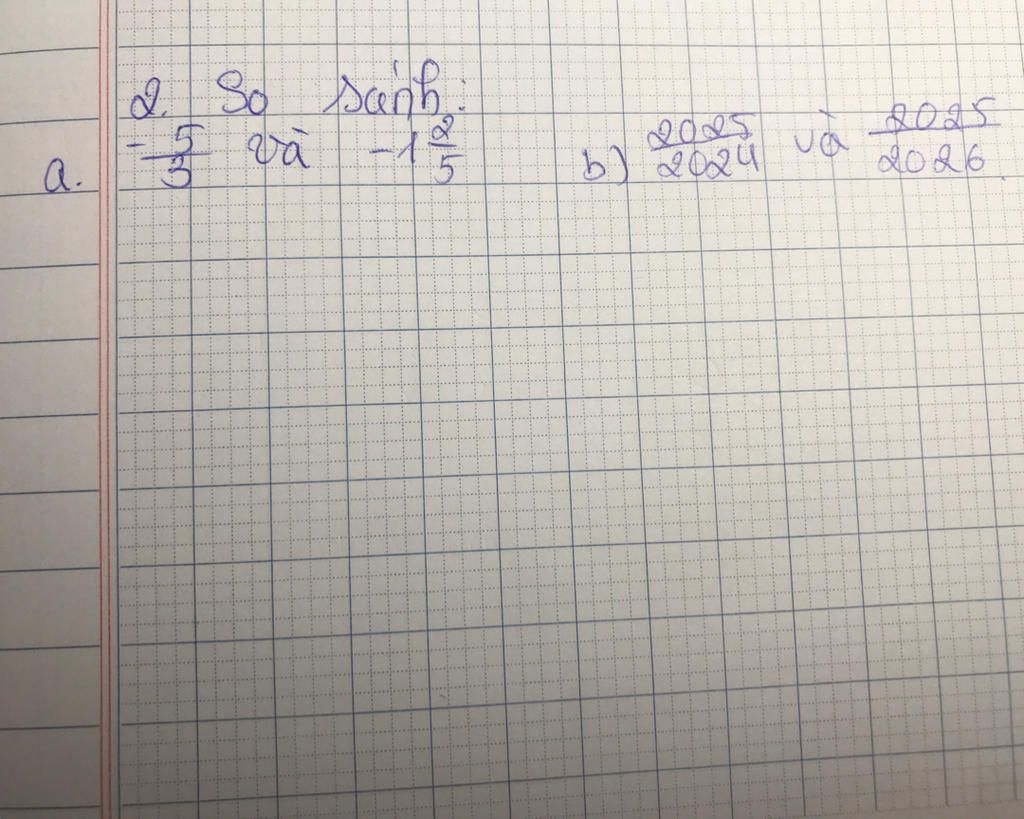 2. So sánh:
a. -5/3 và -1 2/5 b) 2025/2024 và 2025/2026.